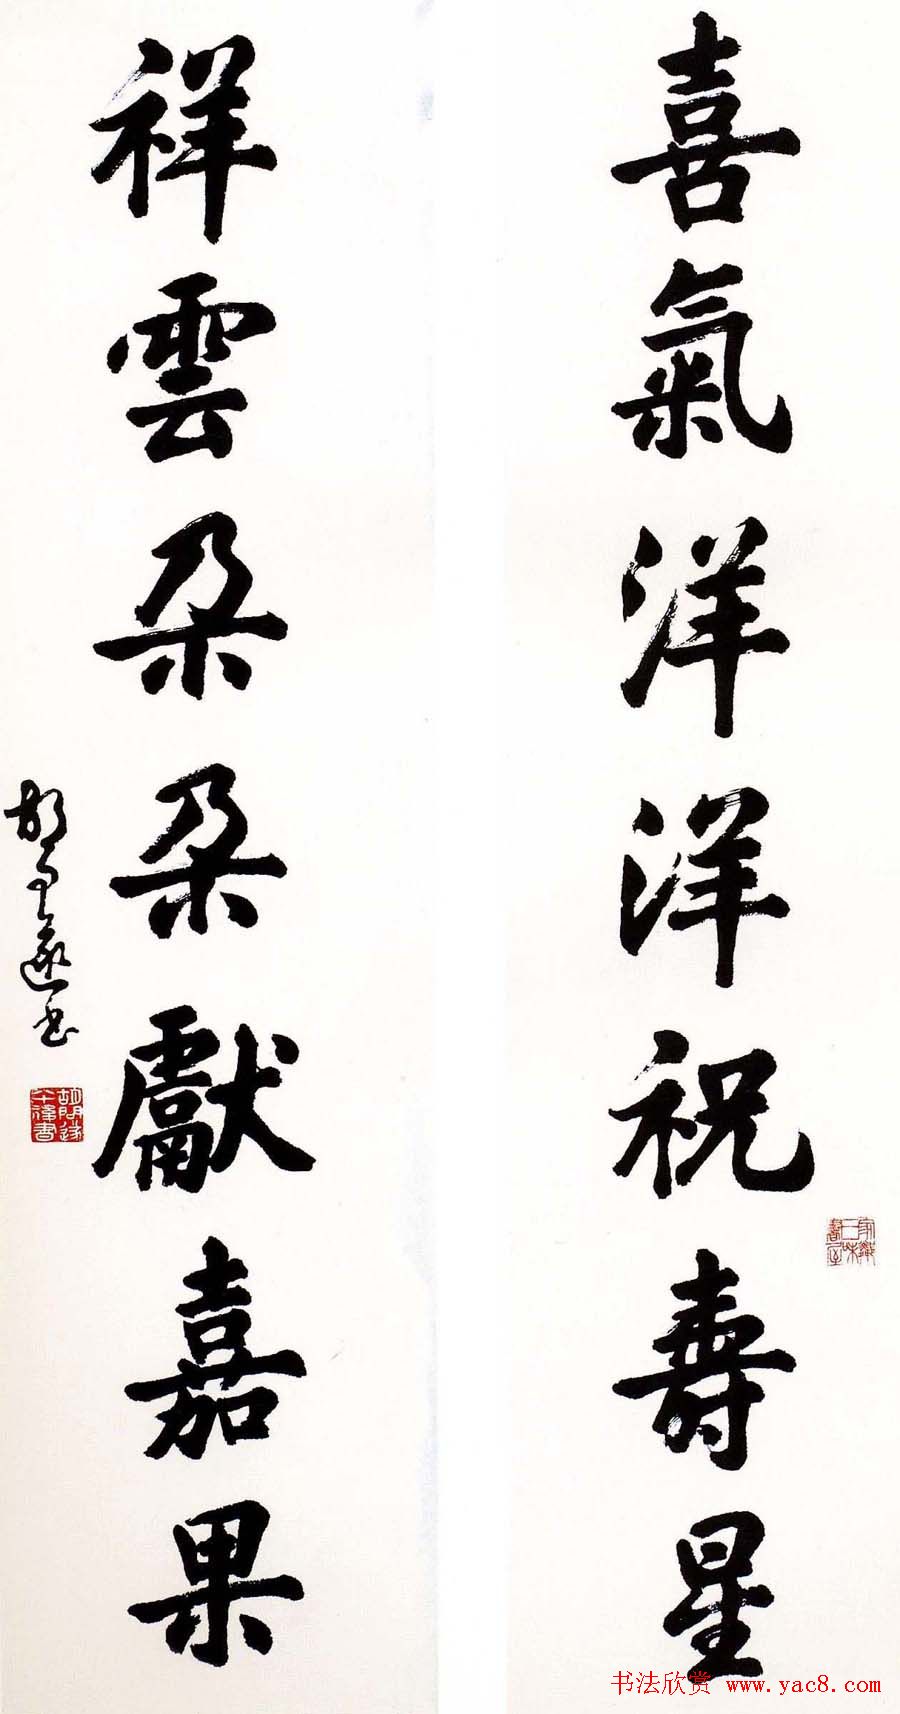 喜氣洋洋祝壽星
祥雲朵朵獻嘉果
胡問遂书
胡問遂
七十後書
书法欣赏 www.yac8.com